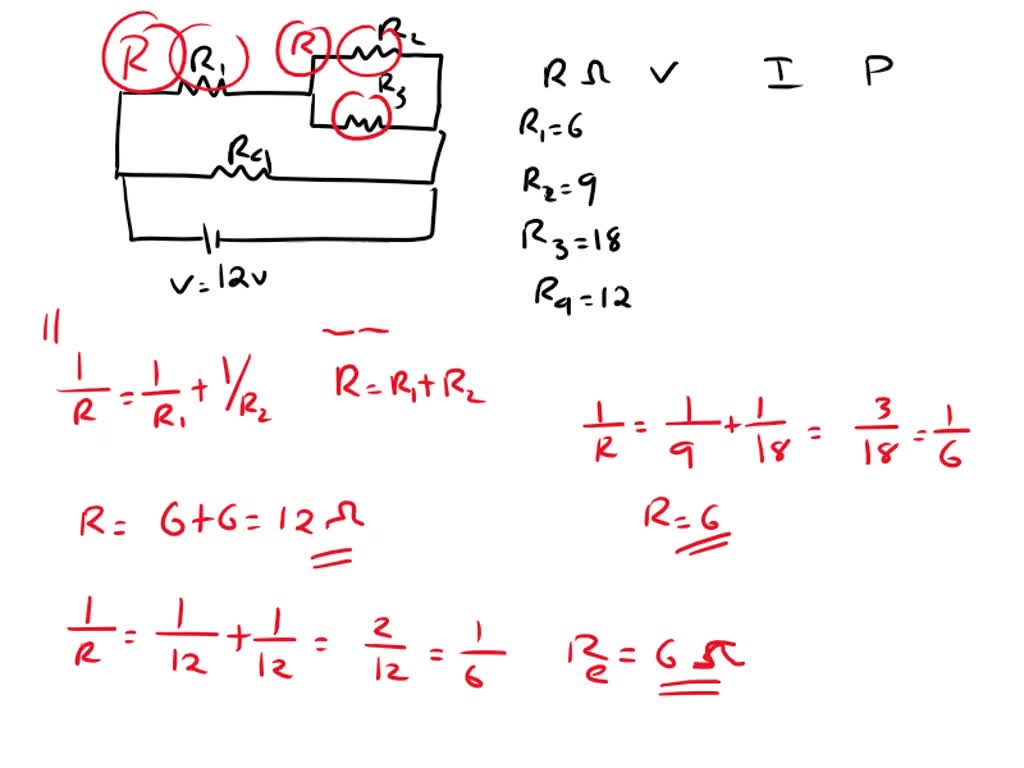 R R₁ R R₂
R₃
R₄
V=12V
R Ω V I P
R₁=6
R₂=9
R₃=18
R₄=12
||
1/R = 1/R₁ + 1/R₂
R=R₁+R₂
1/R = 1/9 + 1/18 = 3/18 = 1/6
R= 6+6= 12 Ω
R=6
1/R = 1/12 + 1/12 = 2/12 = 1/6
Re = 6 Ω